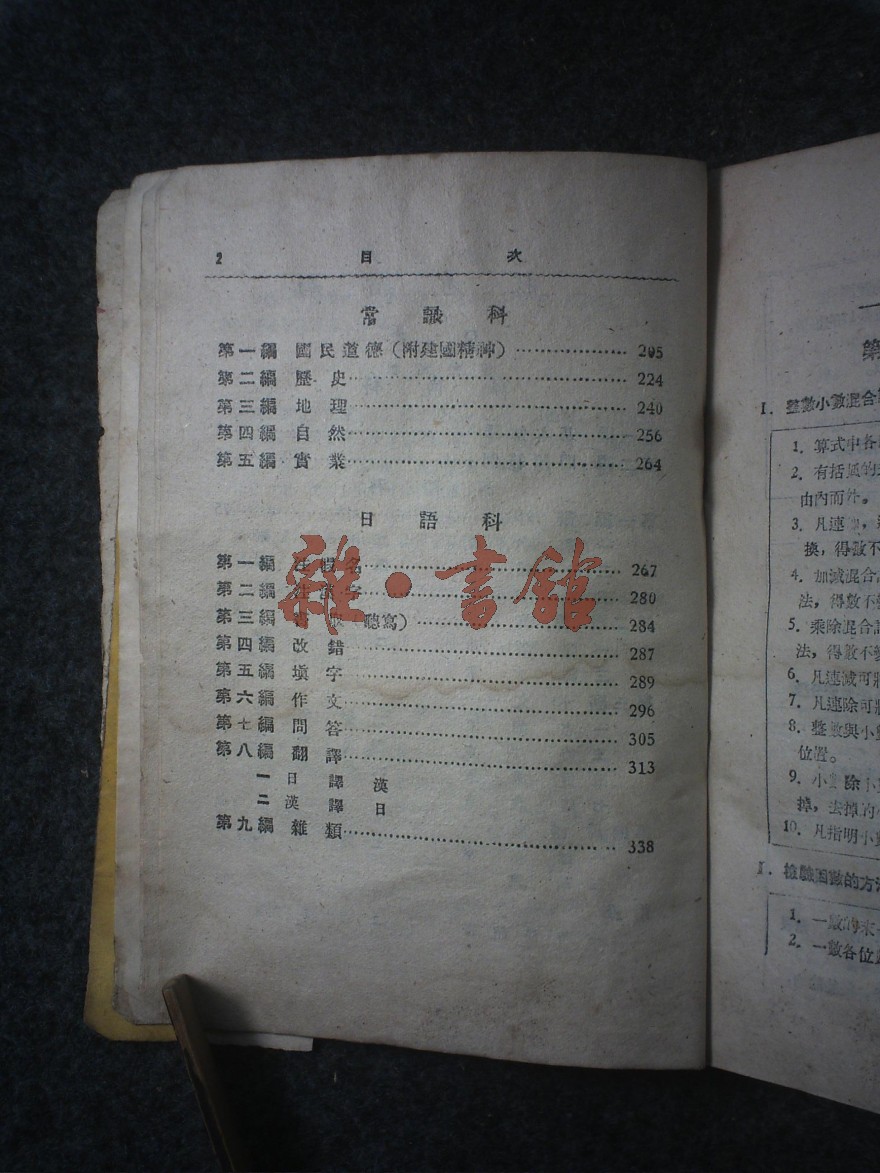 2 目 次
常識科
第一編 國民道德(附建國精神)………………205
第二編 歷史………………224
第三編 地理………………240
第四編 自然………………256
第五編 實業………………264
日語科
第一編 註假名………………267
第二編 註漢字………………280
第三編 聽寫)………………284
第四編 改錯………………287
第五編 填字………………289
第六編 作文………………296
第七編 問答………………305
第八編 翻譯………………313
一 日譯漢
二 漢譯日
第九編 雜類………………338
雜·書館
一
第
I. 整數小數混合
1. 算式中各
2. 有括弧的
由內而外。
3. 凡連
換,得數不
4. 加減混合
法,得數不
5. 乘除混合
法,得數不
6. 凡連減可將
7. 凡連除可將
8. 整數與小
位置。
9. 小數除小
掉,去掉的小
10. 凡指明小
II. 檢驗因數的方法
1. 一數的末
2. 一數各位